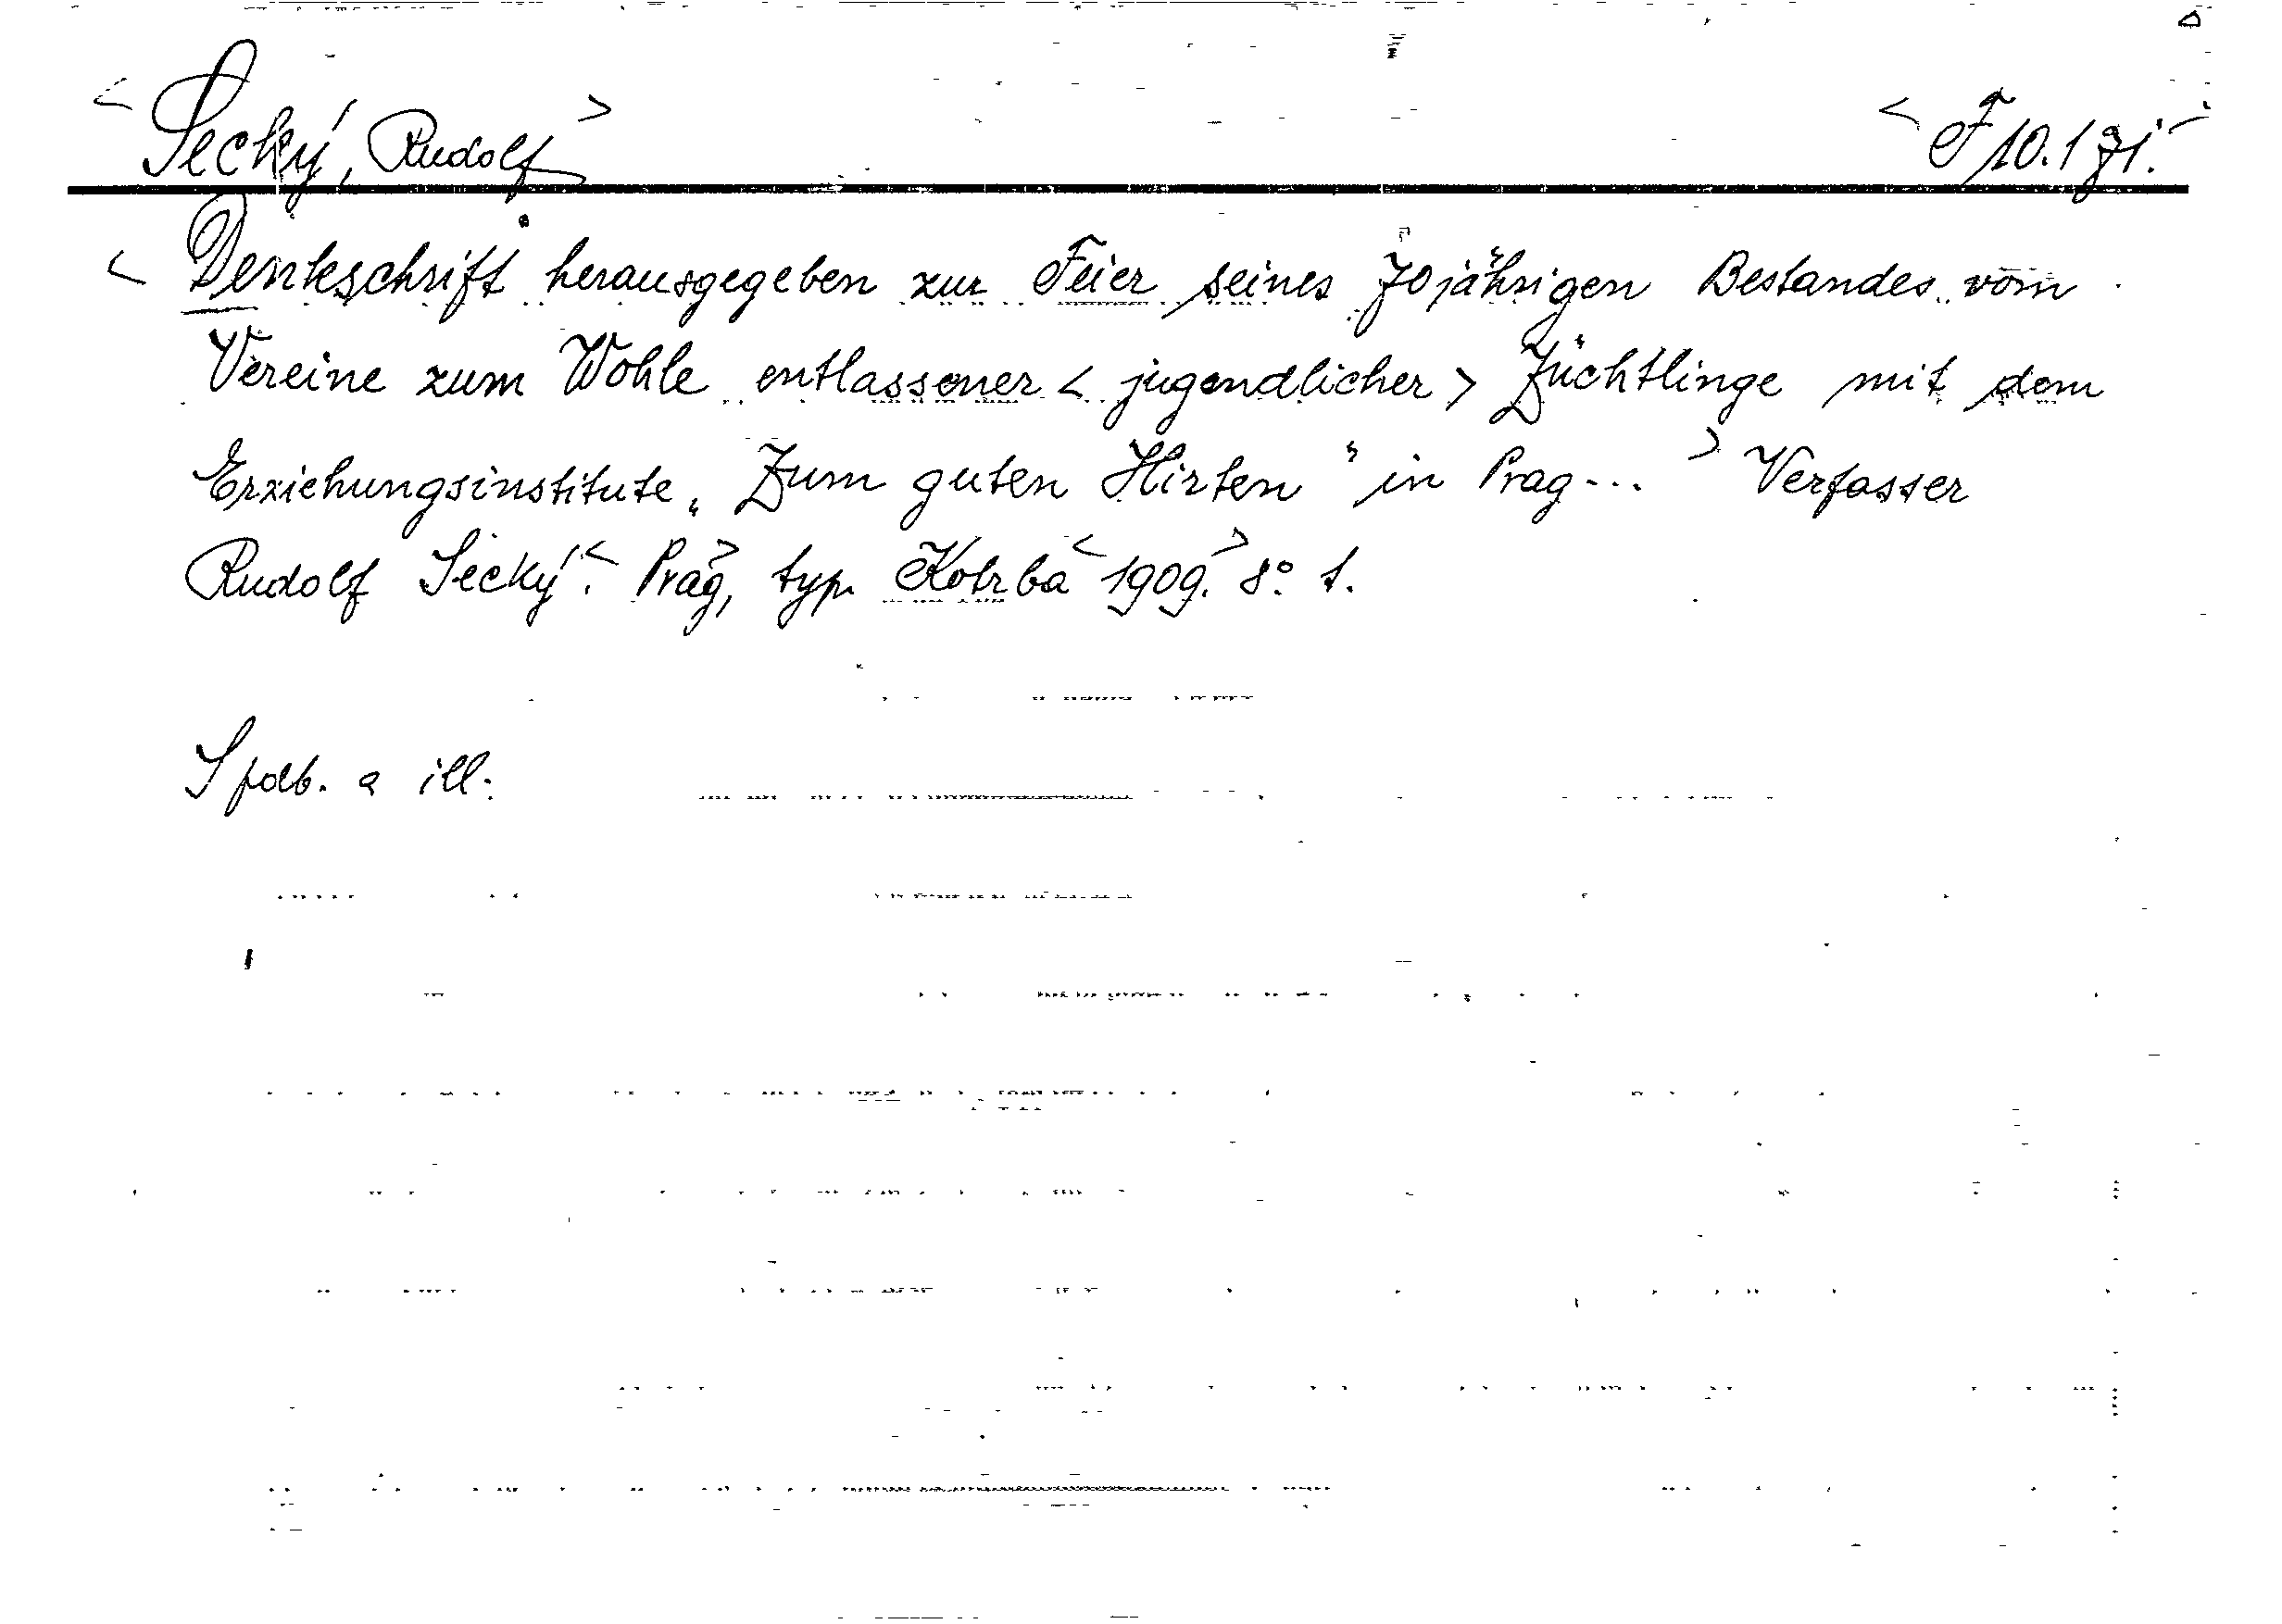 < Secký, Rudolf > < F 10.171. >
< Denkschrift herausgegeben zur Feier seines 70jährigen Bestandes vom
Vereine zum Wohle entlassener < jugendlicher > Züchtlinge mit dem
Erziehungsinstitute „Zum guten Hirten" in Prag... > Verfasser
Rudolf Secký. < Prag, > typ. Kotrba < 1909. > 8° 1.
S podb. a ill.